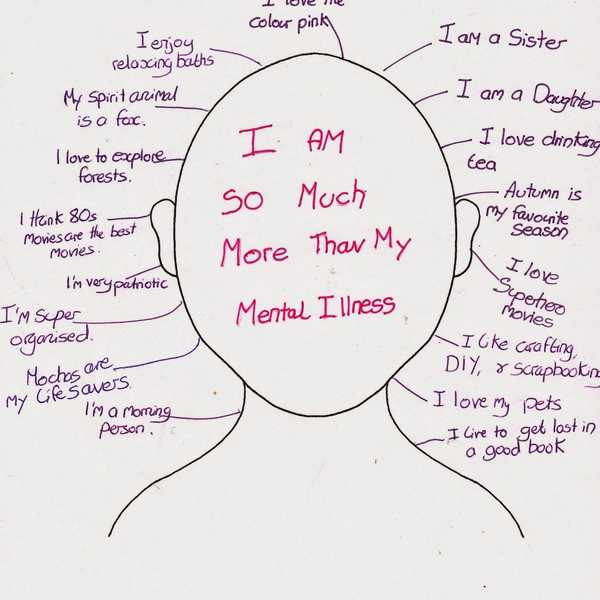 I love the
colour pink
I enjoy
relaxing baths
My spirit animal
is a fox.
I love to explore
forests.
I think 80s
Movies are the best
movies.
I'm very patriotic
I'M super
organised.
Mochas are
my Life Savers.
I'm a morning
person.
I AM
SO Much
More Than My
Mental Illness
I am a Sister
I am a Daughter
I love drinking
tea
Autumn is
my favourite
season
I love
Superhero
movies
I like crafting,
DIY, & scrapbooking
I love my pets
I live to get lost in
a good book